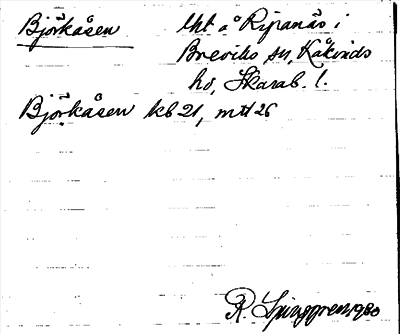 Björkåsen tht å Ripanäs i
Breviks sn, Kåkinds
hd, Skarab. l.
Björkåsen kb 21, mtl 26
R. Ljunggren 1980